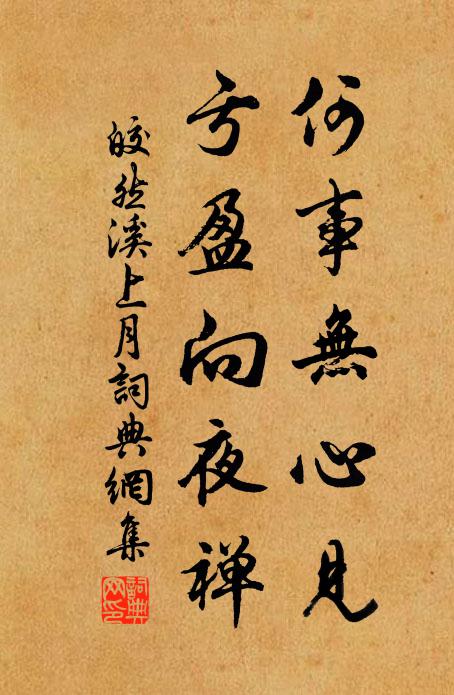 何事無心見
亏盈向夜禅
皎然溪上月詞典網集
詞典网印